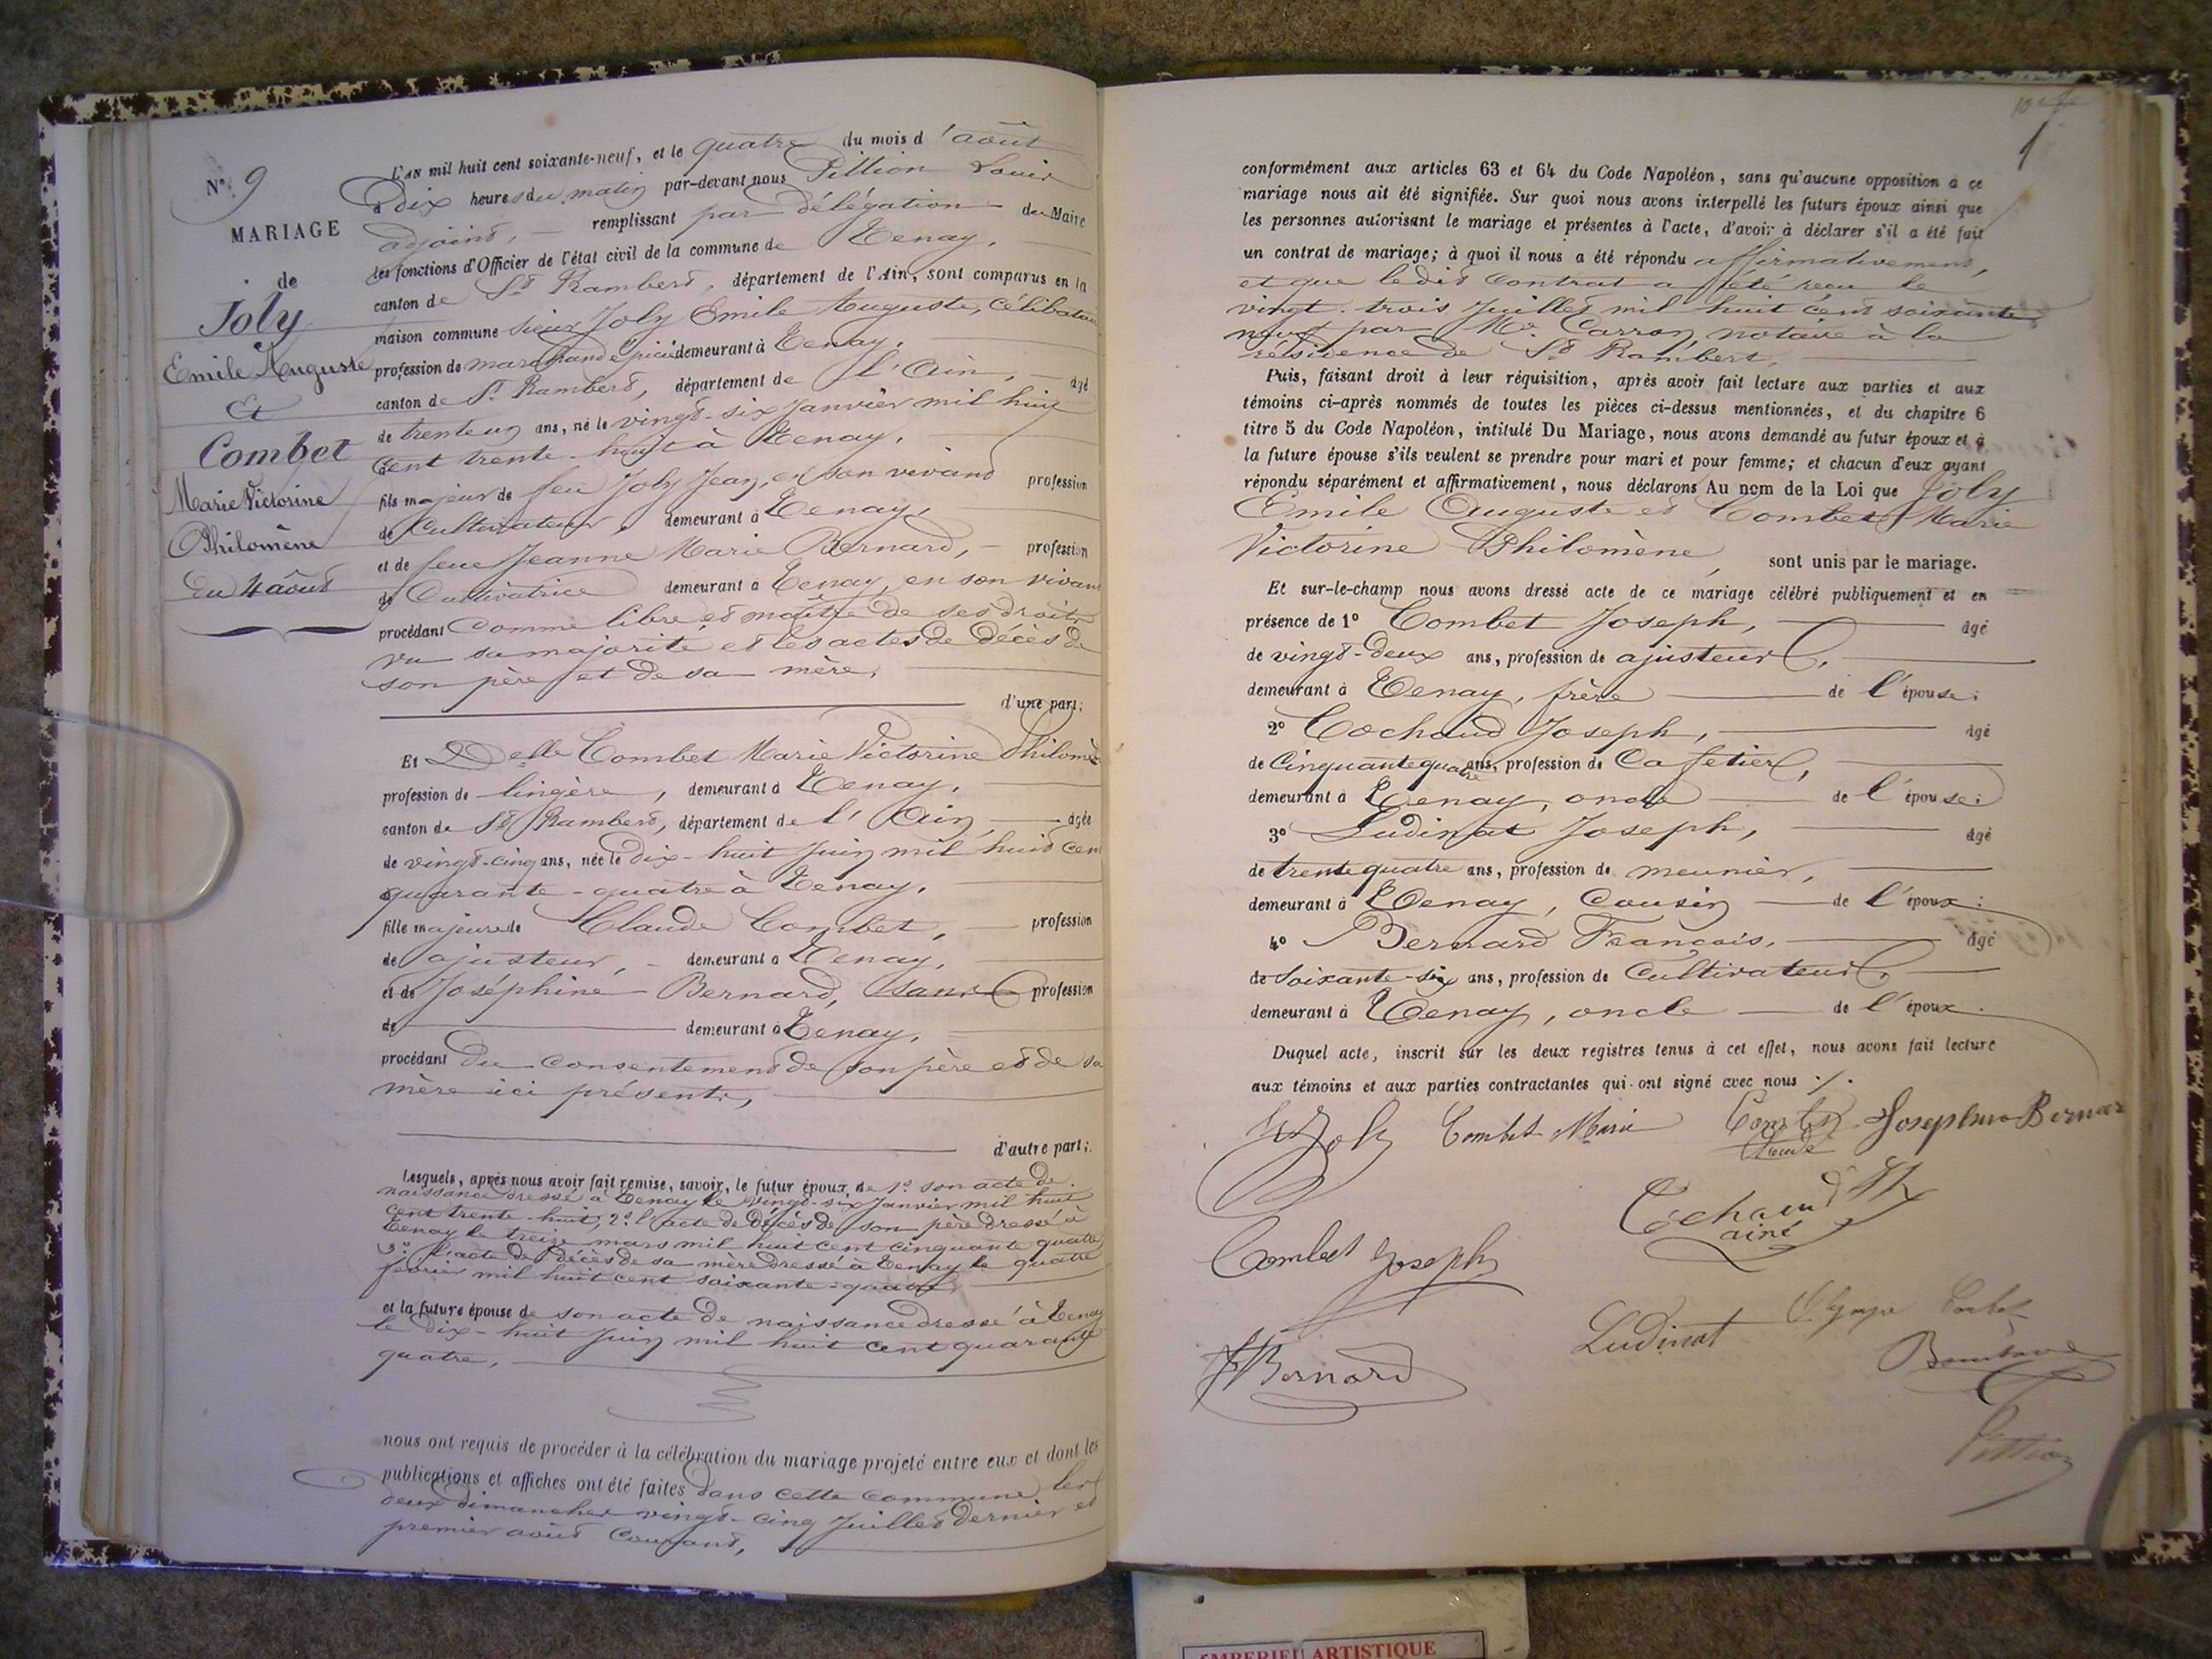 N° 9
MARIAGE
de
Joly
Emile Auguste
Et
Combet
Marie Victorine
Philomène
Du 4 août
L'AN mil huit cent soixante-neuf, et le quatre du mois d'août
à dix heures du matin par-devant nous Pittion Louis
adjoint, remplissant par délégation du Maire
les fonctions d'Officier de l'état civil de la commune de Tenay,
canton de St Rambert, département de l'Ain, sont comparus en la
maison commune sieur Joly Emile Auguste, célibataire
profession de marchand épicier demeurant à Tenay,
canton de St Rambert, département de l'Ain, âgé
de trente un ans, né le vingt-six Janvier mil huit
cent trente-huit à Tenay,
fils majeur de feu Joly Jean, en son vivant profession
de Cultivateur, demeurant à Tenay,
et de feue Jeanne Marie Bernard, profession
de Cultivatrice demeurant à Tenay, en son vivant
procédant Comme libre et maître de ses droits
vu sa majorité et les actes de décès de
son père et de sa mère,
d'une part;
Et Delle Combet Marie Victorine Philomène
profession de lingère, demeurant à Tenay,
canton de St Rambert, département de l'Ain, âgée
de vingt-cinq ans, née le dix-huit Juin mil huit cent
quarante-quatre à Tenay,
fille majeure de Claude Combet, profession
de ajusteur, demeurant à Tenay,
et de Joséphine Bernard, sans profession
de demeurant à Tenay,
procédant Du consentement de son père et de sa
mère ici présents,
d'autre part;
Lesquels, après nous avoir fait remise, savoir, le futur époux de 1° son acte de
naissance dressé à Tenay le vingt-six Janvier mil huit
cent trente-huit, 2° l'acte de décès de son père dressé à
Tenay le treize mars mil huit cent cinquante quatre
3° l'acte de décès de sa mère dressé à Tenay le quatre
février mil huit cent soixante-quatre,
et la future épouse de son acte de naissance dressé à Tenay
le dix-huit Juin mil huit cent quarante
quatre,
nous ont requis de procéder à la célébration du mariage projeté entre eux et dont les
publications et affiches ont été faites dans cette commune les
deux dimanches vingt-cinq Juillet dernier et
premier août Courant,
1
conformément aux articles 63 et 64 du Code Napoléon, sans qu'aucune opposition à ce
mariage nous ait été signifiée. Sur quoi nous avons interpellé les futurs époux ainsi que
les personnes autorisant le mariage et présentes à l'acte, d'avoir à déclarer s'il a été fait
un contrat de mariage; à quoi il nous a été répondu affirmativement,
et que ledit Contrat a été reçu le
vingt-trois Juillet mil huit cent soixante
neuf par Me Carron, notaire à la
résidence de St Rambert,
Puis, faisant droit à leur réquisition, après avoir fait lecture aux parties et aux
témoins ci-après nommés de toutes les pièces ci-dessus mentionnées, et du chapitre 6
titre 5 du Code Napoléon, intitulé Du Mariage, nous avons demandé au futur époux et à
la future épouse s'ils veulent se prendre pour mari et pour femme; et chacun d'eux ayant
répondu séparément et affirmativement, nous déclarons Au nom de la Loi que Joly
Emile Auguste et Combet Marie
Victorine Philomène, sont unis par le mariage.
Et sur-le-champ nous avons dressé acte de ce mariage célébré publiquement et en
présence de 1° Combet Joseph, âgé
de vingt-deux ans, profession de ajusteur,
demeurant à Tenay, frère de l'épouse;
2° Cochaud Joseph, âgé
de Cinquante quatre ans, profession de Cafetier,
demeurant à Tenay, oncle de l'épouse;
3° Ludinat Joseph, âgé
de trente quatre ans, profession de meunier,
demeurant à Tenay, Cousin de l'époux;
4° Bernard François, âgé
de soixante-six ans, profession de Cultivateur,
demeurant à Tenay, oncle de l'époux.
Duquel acte, inscrit sur les deux registres tenus à cet effet, nous avons fait lecture
aux témoins et aux parties contractantes qui ont signé avec nous ./.
Joly Combet Marie Combet Claude Josephine Bernar
Cochaud
ainé
Combet Joseph
Ludinat
Bernard
Pittion
ARTISTIQUE